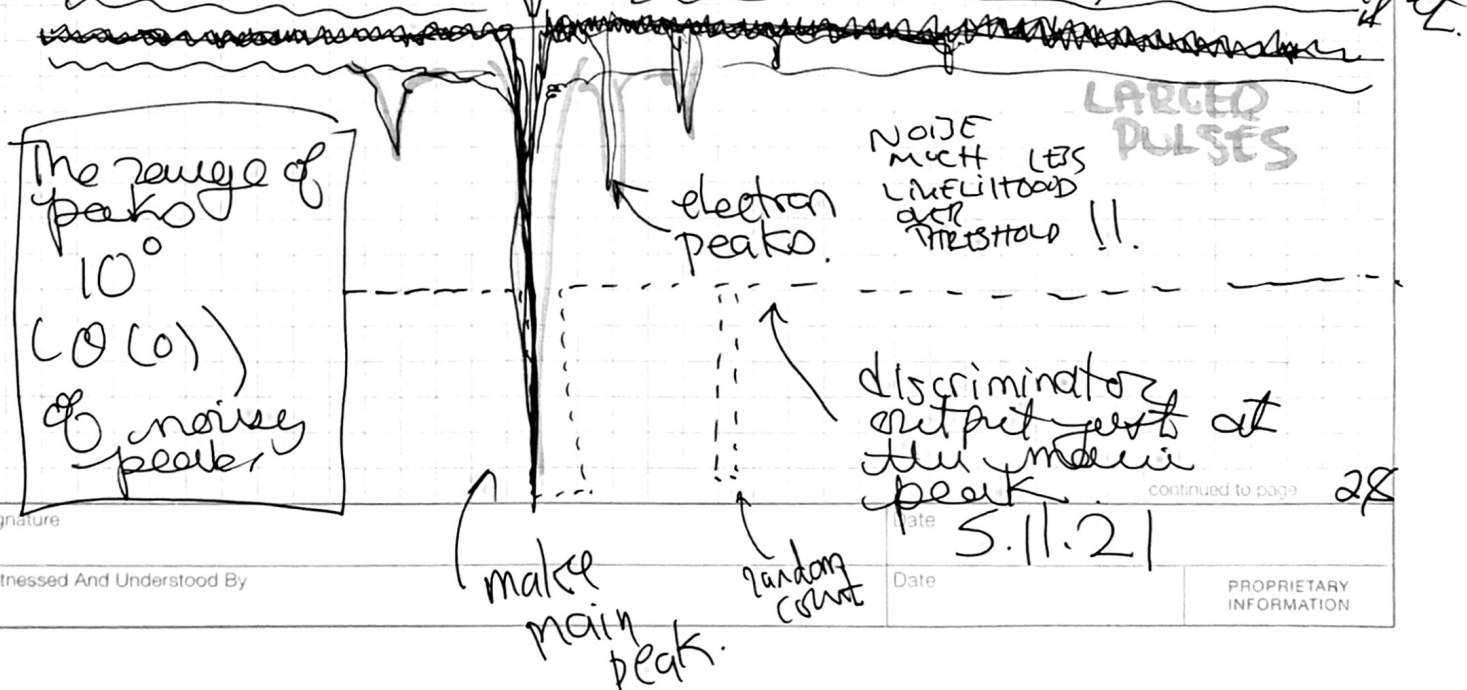 The range of
peaks
10°
(O(0))
of noisy
peaks
electron
peaks.
LARGER
PULSES
NOISE
MUCH LESS
LIKELIHOOD
OVER
THRESHOLD !!.
discriminator
output just at
the main
peak.
continued to page 28
gnature
Date 5.11.21
tnessed And Understood By
Date
PROPRIETARY
INFORMATION
make
main
peak.
random
count